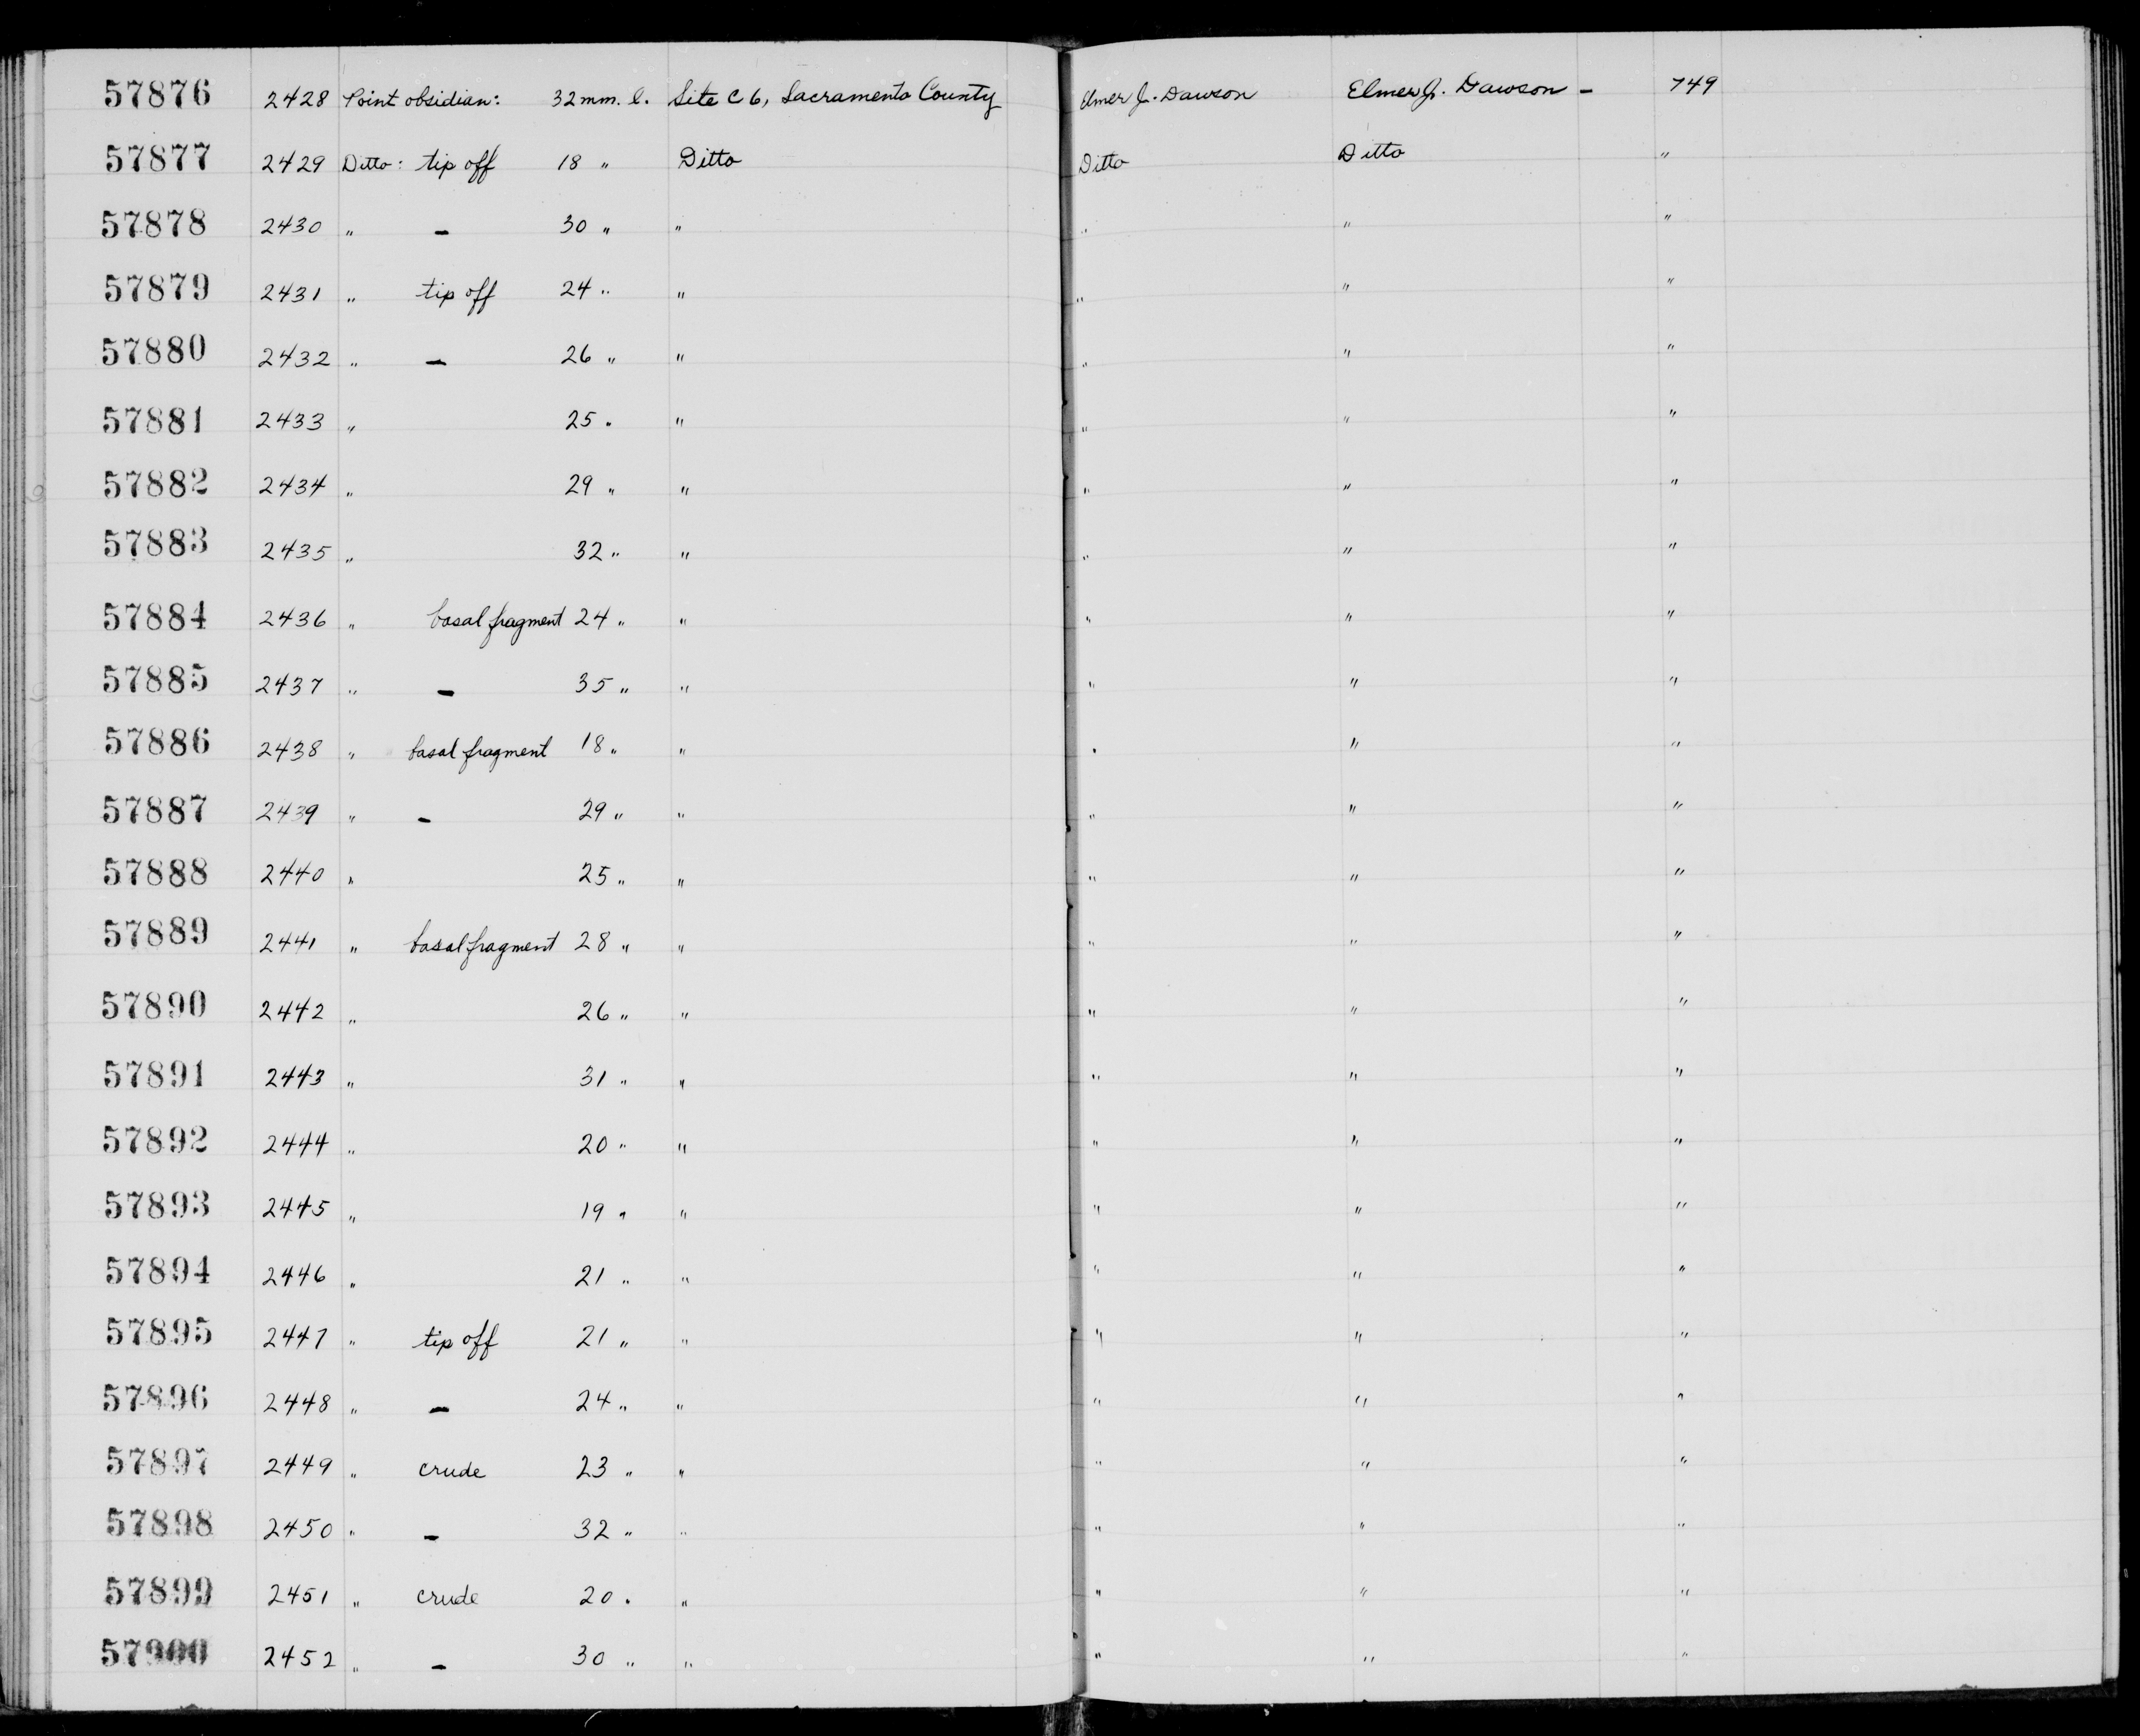 57876 2428 Point obsidian: 32 mm. l. Site C 6, Sacramento County Elmer J. Dawson Elmer J. Dawson — 749
57877 2429 Ditto: tip off 18 " Ditto Ditto Ditto "
57878 2430 " — 30 " " " " "
57879 2431 " tip off 24 " " " " "
57880 2432 " — 26 " " " " "
57881 2433 " 25 " " " " "
57882 2434 " 29 " " " " "
57883 2435 " 32 " " " " "
57884 2436 " basal fragment 24 " " " " "
57885 2437 " — 35 " " " " "
57886 2438 " basal fragment 18 " " " " "
57887 2439 " — 29 " " " " "
57888 2440 " 25 " " " " "
57889 2441 " basal fragment 28 " " " " "
57890 2442 " 26 " " " " "
57891 2443 " 31 " " " " "
57892 2444 " 20 " " " " "
57893 2445 " 19 " " " " "
57894 2446 " 21 " " " " "
57895 2447 " tip off 21 " " " " "
57896 2448 " — 24 " " " " "
57897 2449 " crude 23 " " " " "
57898 2450 " — 32 " " " " "
57899 2451 " crude 20 " " " " "
57900 2452 " — 30 " " " " "